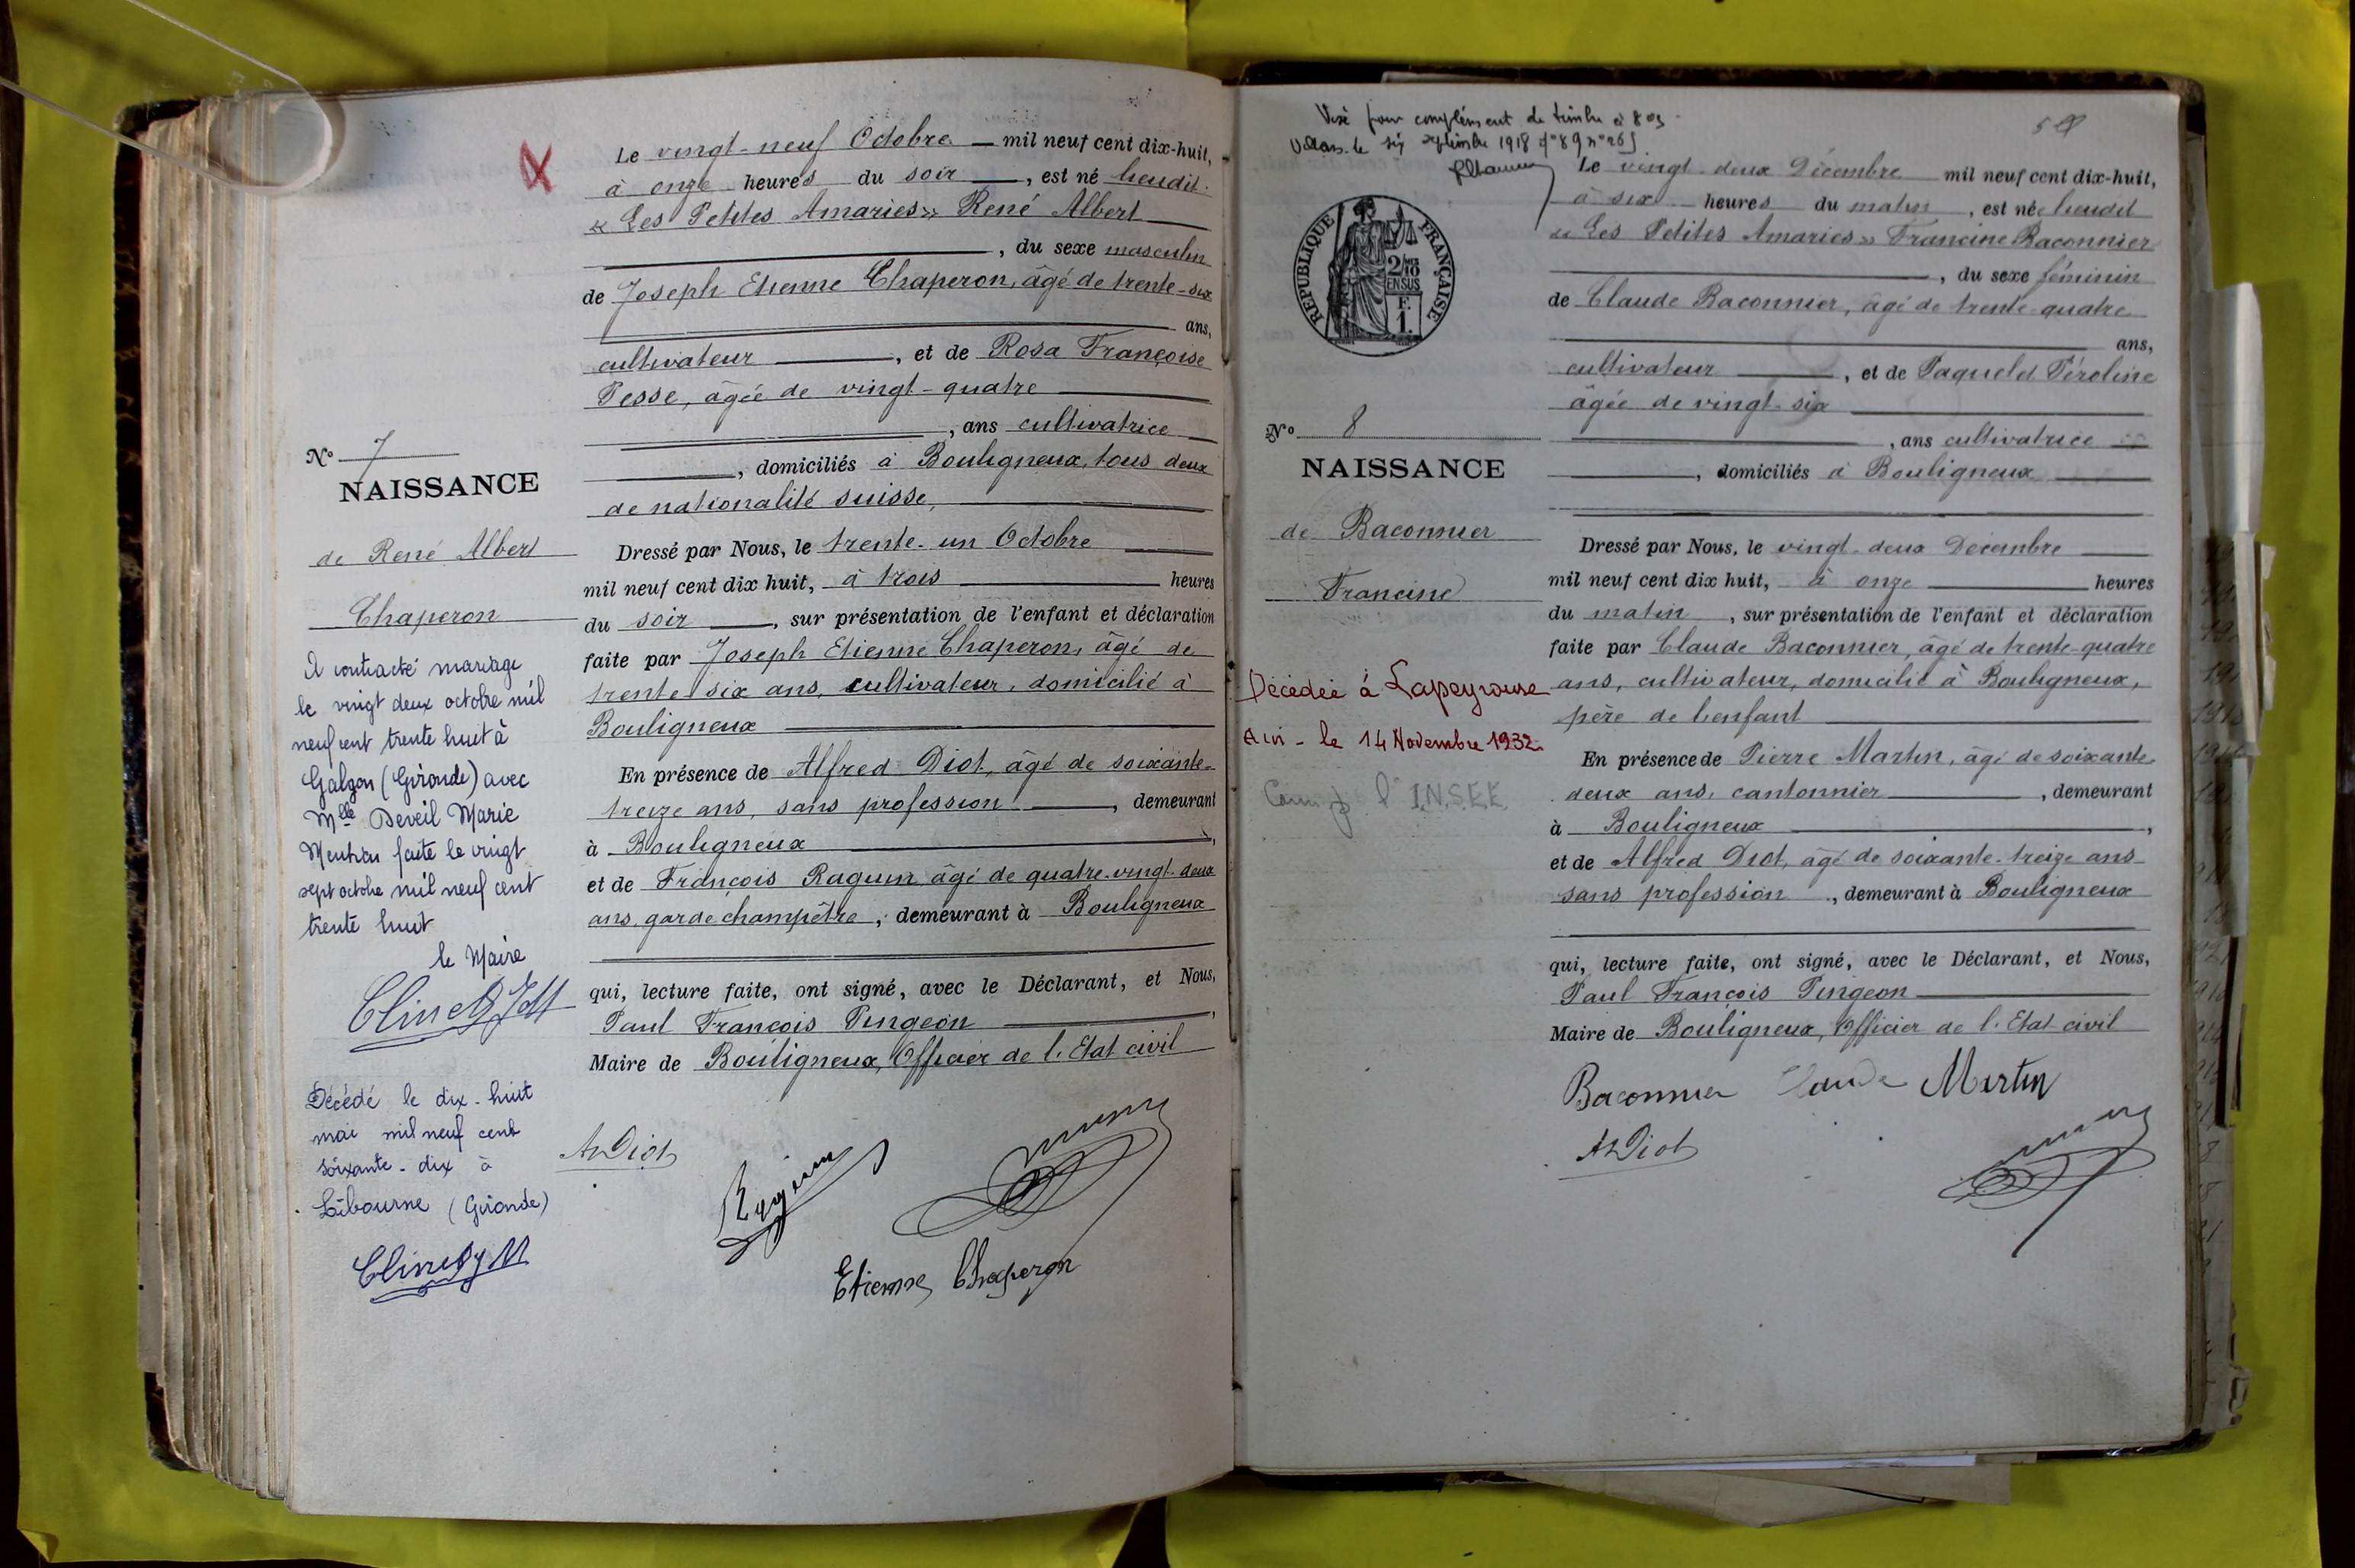 Le vingt-neuf Octobre mil neuf cent dix-huit,
à onze heures du soir, est né lieudit
« Les Petites Amaries » René Albert
, du sexe masculin
de Joseph Etienne Chaperon, âgé de trente-six
ans,
cultivateur, et de Rosa Françoise
Pesse, âgée de vingt-quatre
, ans cultivatrice
, domiciliés à Bouligneux, tous deux
de nationalité suisse,
N° 7
NAISSANCE
de René Albert
Chaperon
Dressé par Nous, le trente-un Octobre
mil neuf cent dix huit, à trois heures
du soir, sur présentation de l'enfant et déclaration
faite par Joseph Etienne Chaperon, âgé de
trente six ans, cultivateur, domicilié à
Bouligneux
En présence de Alfred Diot, âgé de soixante-
treize ans, sans profession, demeurant
à Bouligneux,
et de François Raguin âgé de quatre-vingt-deux
ans, garde champêtre, demeurant à Bouligneux
qui, lecture faite, ont signé, avec le Déclarant, et Nous,
Paul François Pingeon,
Maire de Bouligneux, Officier de l'Etat civil
A contracté mariage
le vingt deux octobre mil
neuf cent trente huit à
Galgon (Gironde) avec
Mlle Deveil Marie
Mention faite le vingt
sept octobre mil neuf cent
trente huit
le Maire
Décédé le dix-huit
mai mil neuf cent
soixante-dix à
Libourne (Gironde)
A Diot
Raguin
Etienne Chaperon
Visé pour complément de timbre à
le six septembre 1918
REPUBLIQUE FRANÇAISE
2/10
EN SUS
F.
1.
Le vingt-deux Décembre mil neuf cent dix-huit,
à six heures du matin, est née lieudit
« Les Petites Amaries » Francine Baconnier
, du sexe féminin
de Claude Baconnier, âgé de trente-quatre
ans,
cultivateur, et de Paquelet Péroline
âgée de vingt-six
, ans cultivatrice
, domiciliés à Bouligneux
N° 8
NAISSANCE
de Baconnier
Francine
Décédée à Lapeyrouse
Ain - le 14 Novembre 1932
l'I.N.S.E.E.
Dressé par Nous, le vingt-deux Décembre
mil neuf cent dix huit, à onze heures
du matin, sur présentation de l'enfant et déclaration
faite par Claude Baconnier, âgé de trente-quatre
ans, cultivateur, domicilié à Bouligneux,
père de l'enfant
En présence de Pierre Martin, âgé de soixante-
deux ans, cantonnier, demeurant
à Bouligneux,
et de Alfred Diot, âgé de soixante-treize ans
sans profession, demeurant à Bouligneux
qui, lecture faite, ont signé, avec le Déclarant, et Nous,
Paul François Pingeon
Maire de Bouligneux, Officier de l'Etat civil
Baconnier Claude Martin
A Diot